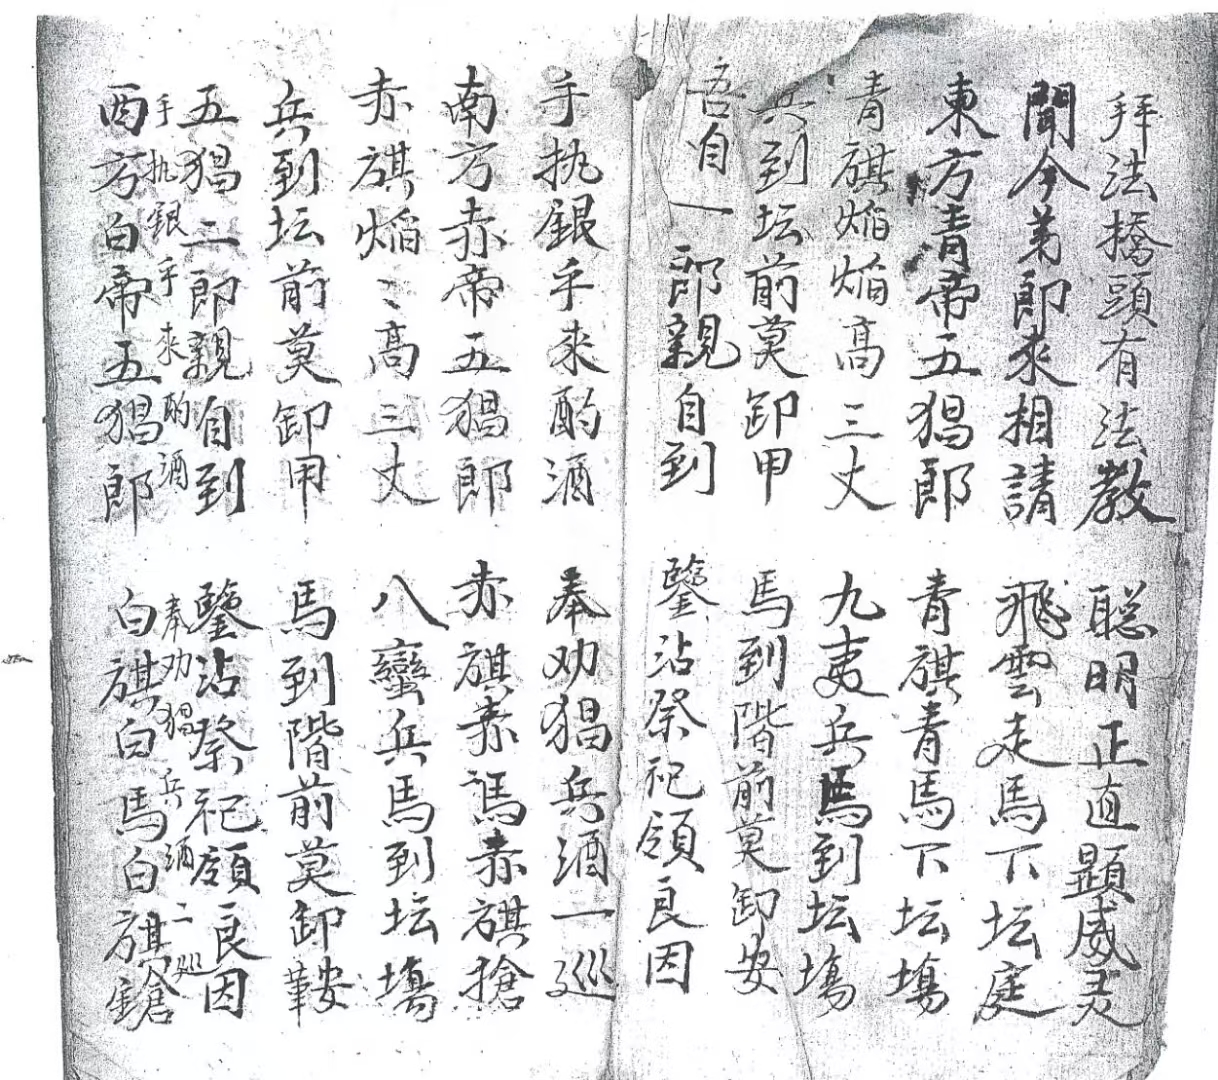 拜法橋頭有法教 聡明正直顕威灵
聞今弟郎來相請 飛雲走馬下坛庭
東方青帝五猖郎 青旗青馬下坛塲
青旗焰焰高三丈 九夷兵馬到坛塲
兵到坛前莫卸甲 馬到階前莫卸安
吾自一郎親自到 鑒沾祭祀領良因
手执銀手來酌酒 奉劝猖兵酒一巡
南方赤帝五猖郎 赤旗赤馬赤旗搶
赤旗焰〻高三丈 八蠻兵馬到坛塲
兵到坛前莫卸甲 馬到階前莫卸鞍
五猖二郎親自到 鑒沾祭祀領良因
手执銀手來酌酒 奉劝猖兵酒二巡
西方白帝五猖郎 白旗白馬白旗鎗